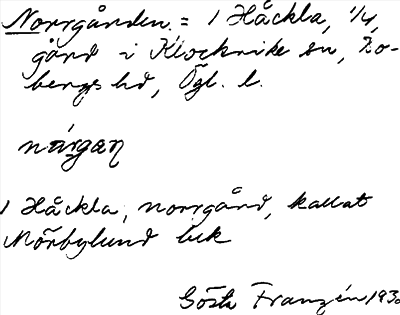 Norrgården, = 1 Håckla, 1/4
gård i Klockrike sn, Bo-
bergs hd, Ögl. l.
nárgan
1 Håckla, norrgård, kallat
Mörbylund luk
Gösta Franzén 193